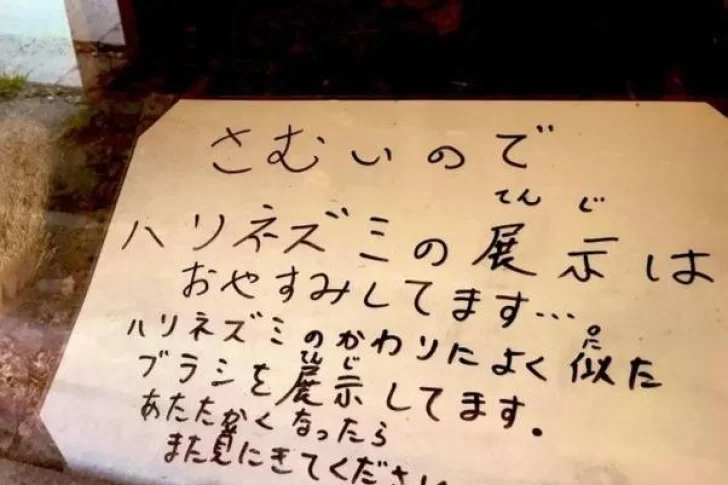 さむいので
てんじ
ハリネズミの展示は
おやすみしてます…
ハリネズミのかわりによく似た
に
ブラシを展示してます。
てんじ
あたたかくなったら
また見にきてください